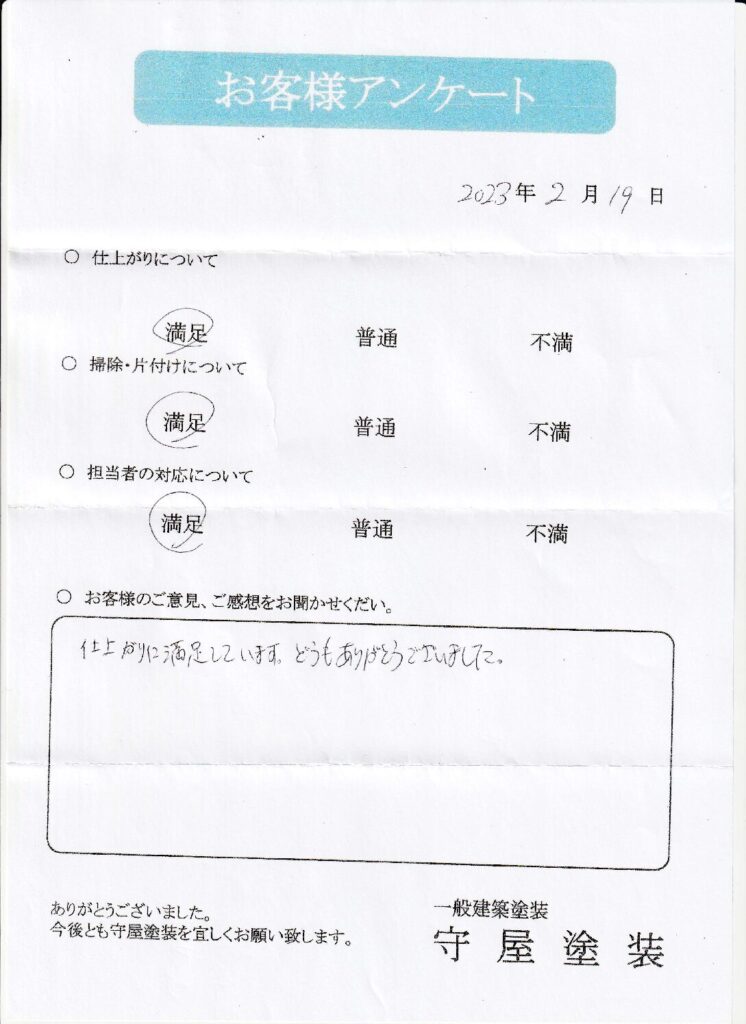 お客様アンケート
2023年 2 月 19 日
○ 仕上がりについて
満足 普通 不満
○ 掃除・片付けについて
満足 普通 不満
○ 担当者の対応について
満足 普通 不満
○ お客様のご意見、ご感想をお聞かせくだい。
仕上がりに満足しています。どうもありがとうございました。
ありがとうございました。
今後とも守屋塗装を宜しくお願い致します。
一般建築塗装
守屋塗装